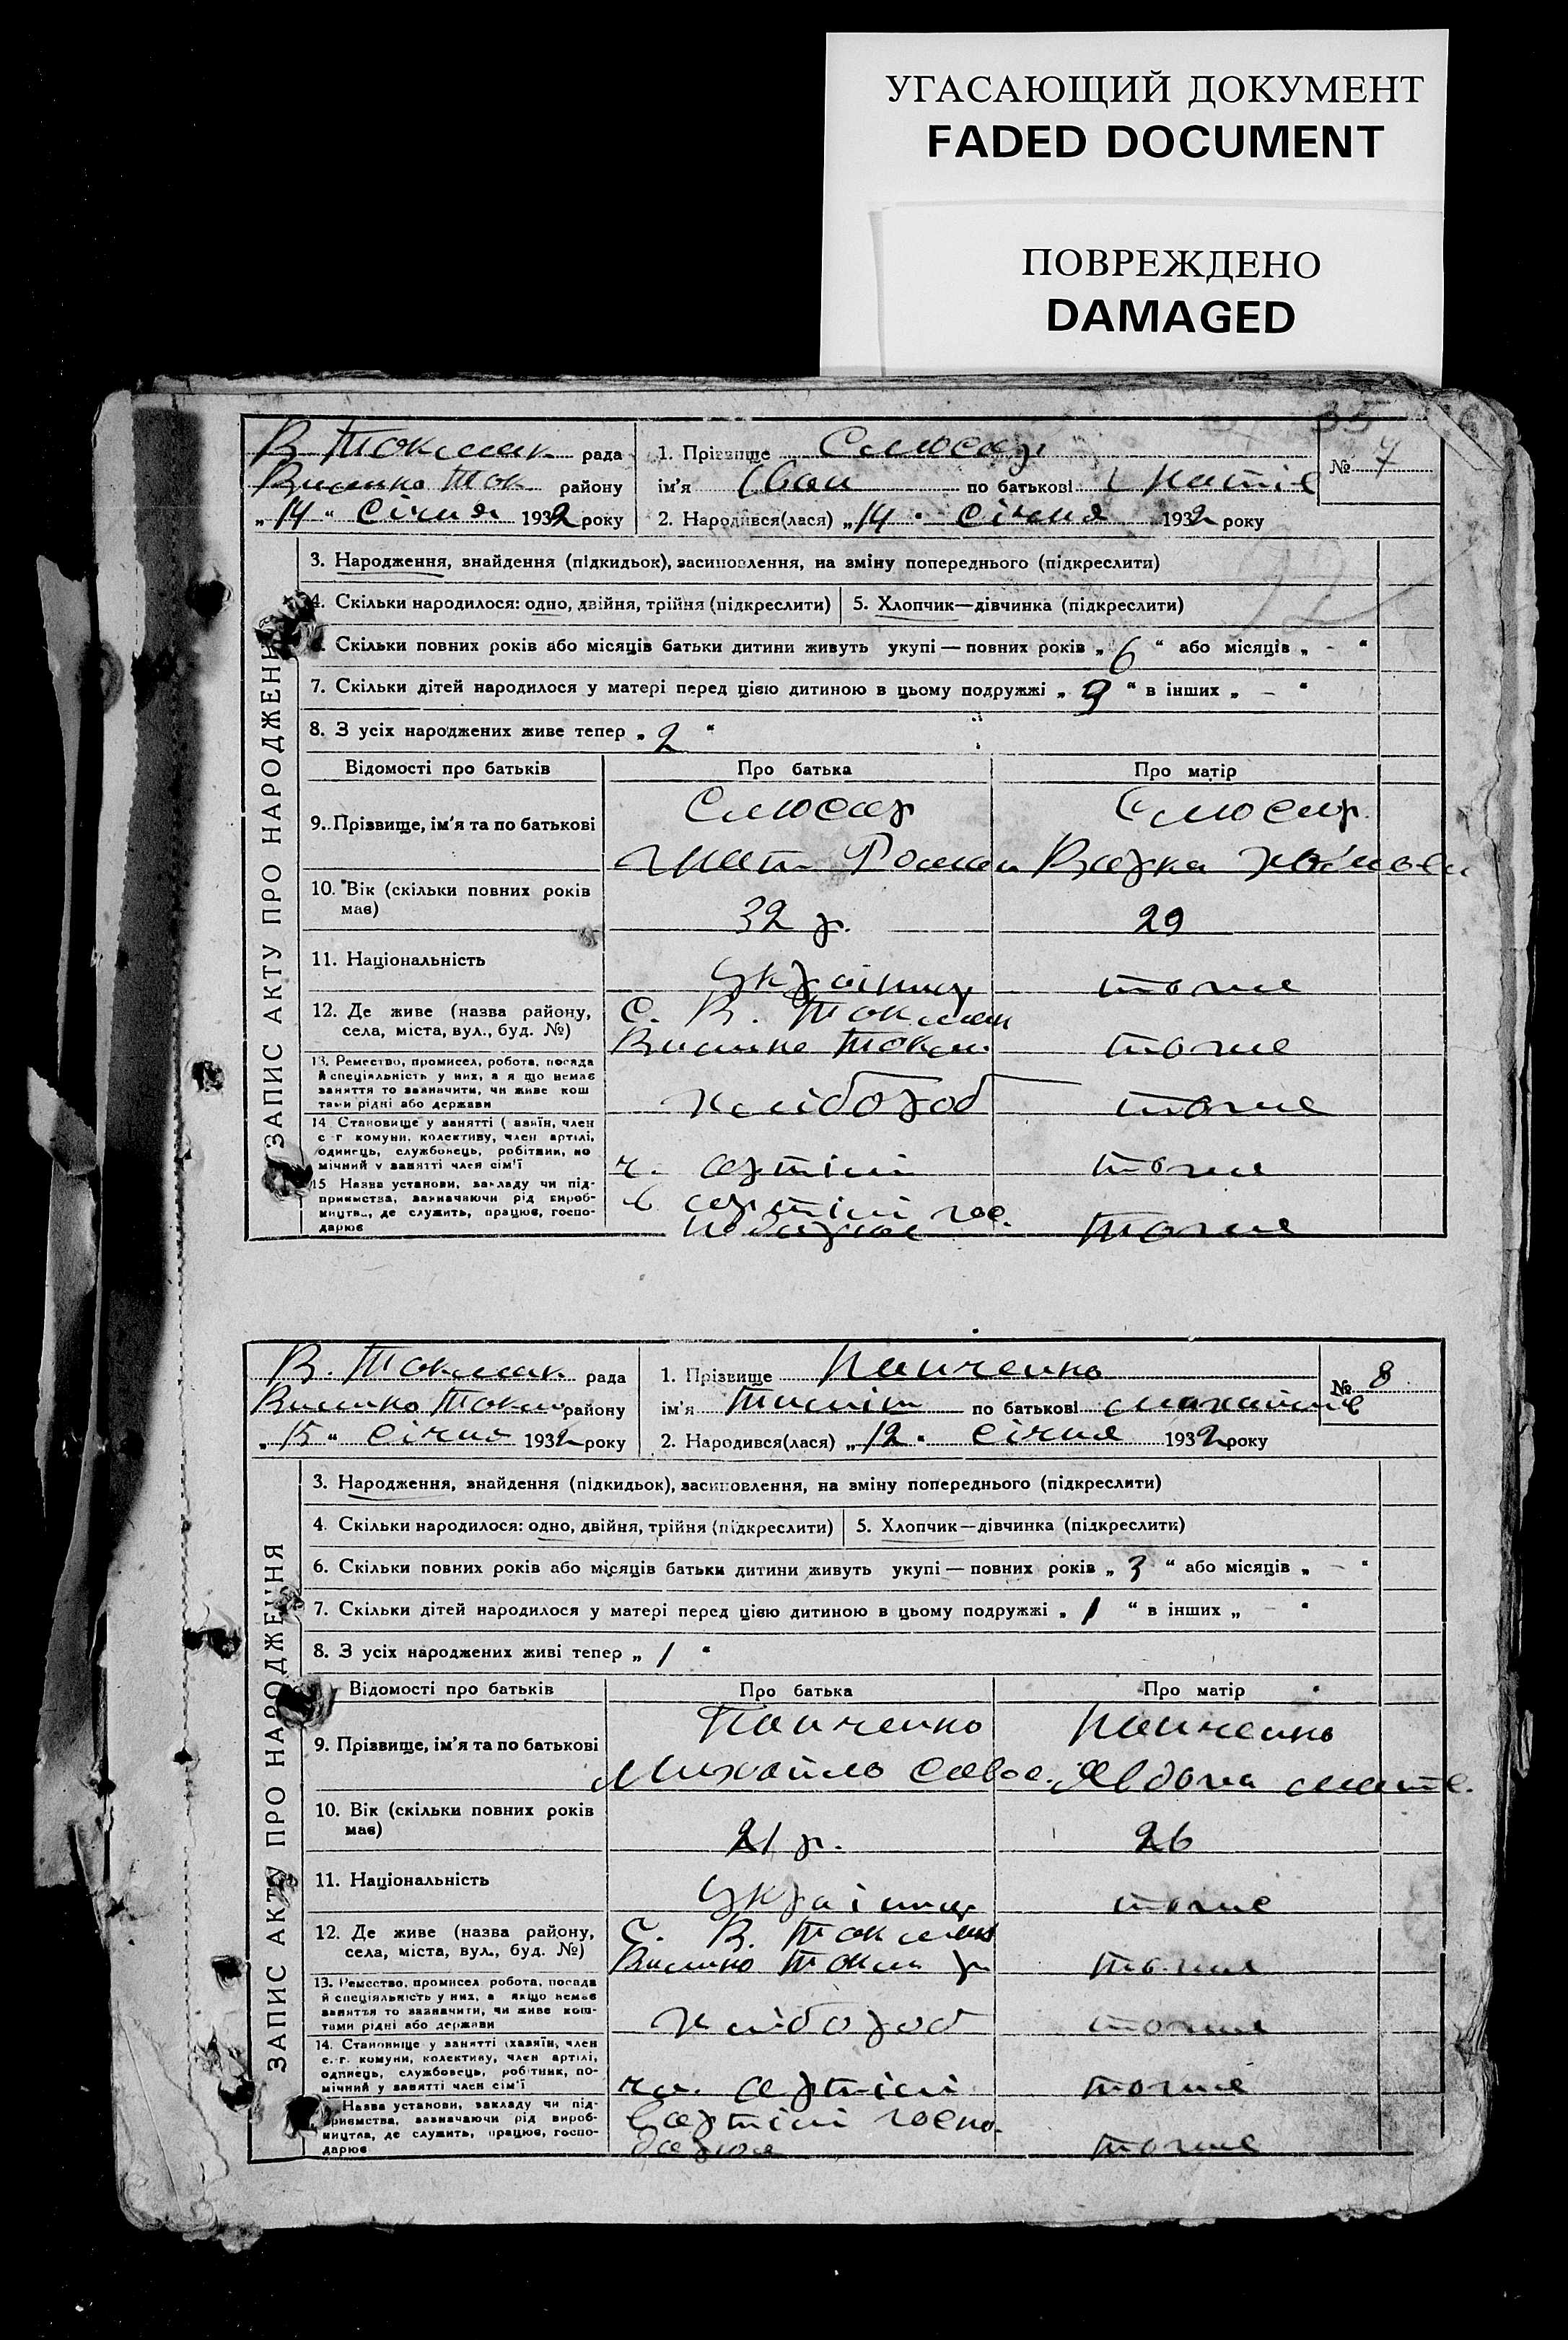 УГАСАЮЩИЙ ДОКУМЕНТ
FADED DOCUMENT
ПОВРЕЖДЕНО
DAMAGED
35
ЗАПИС АКТУ ПРО НАРОДЖЕННЯ
В Токмак рада
Велико Ток району
„14“ Січня 1932 року
1. Прізвище Слюсар
ім'я Іван по батькові Гнатів
2. Народився(лася) „14“ січня 1932 року
№ 7
3. Народження, знайдення (підкидьок), засиновлення, на зміну попереднього (підкреслити)
4. Скільки народилося: одно, двійня, трійня (підкреслити) 5. Хлопчик—дівчинка (підкреслити)
6. Скільки повних років або місяців батьки дитини живуть укупі — повних років „ 6 “ або місяців „ - “
7. Скільки дітей народилося у матері перед цією дитиною в цьому подружжі „ “ в інших „ — “
8. З усіх народжених живе тепер „ 2 “
Відомості про батьків Про батька Про матір
9. Прізвище, ім'я та по батькові Слюсар Слюсар
Гнат Роман Варка
10. Вік (скільки повних років має) 32 р. 29
11. Національність Українці тоже
12. Де живе (назва району, села, міста, вул., буд. №) С. В. Токмак
Велико Токм. тоже
13. Ремество, промисел, робота, посада
й спеціяльність у них, а я що немає
заняття то зазначити, чи живе кош
тами рідні або держави
хлібороб тоже
14 Становище у занятті ( азяїн, член
с г комуни, колективу, член артілі,
одинець, службовець, робітник, по
мічний у занятті член сім'ї
ч. артілі тоже
15 Назва установи, закладу чи під-
приємства, зазначаючи рід вироб-
ництва, де служить, працює, госпо-
дарює
в артілі гос.
подарює тоже
ЗАПИС АКТУ ПРО НАРОДЖЕННЯ
В. Токмак рада
Велико Токм району
„15“ Січня 1932 року
1. Прізвище Панченко
ім'я по батькові Михайлів
2. Народився(лася) „12“ Січня 1932 року
№ 8
3. Народження, знайдення (підкидьок), засиновлення, на зміну попереднього (підкреслити)
4. Скільки народилося: одно, двійня, трійня (підкреслити) 5. Хлопчик—дівчинка (підкреслити)
6. Скільки повних років або місяців батьки дитини живуть укупі — повних років „ 3 “ або місяців „ — “
7. Скільки дітей народилося у матері перед цією дитиною в цьому подружжі „ 1 “ в інших „ — “
8. З усіх народжених живі тепер „ 1 “
Відомості про батьків Про батька Про матір
9. Прізвище, ім'я та по батькові Панченко Панченко
Михайло Савов. Явдоха
10. Вік (скільки повних років має) 21 р. 26
11. Національність Українці тоже
12. Де живе (назва району, села, міста, вул., буд. №) С. В. Токмак
Велико Токм р тоже
13. Ремество, промисел робота, посада
й спеціяльність у них, а якщо немає
заняття то зазначити, чи живе кош-
тами рідні або держави
Хлібороб тоже
14. Становище у занятті (хазяїн, член
с. г. комуни, колективу, член артілі,
одинець, службовець, робітник, по-
мічний у занятті член сім'ї
чл. артілі тоже
Назва установи, закладу чи під-
приємства, зазначаючи рід вироб-
ництва, де служить, працює, госпо-
дарює
В артілі госпо-
дарює тоже